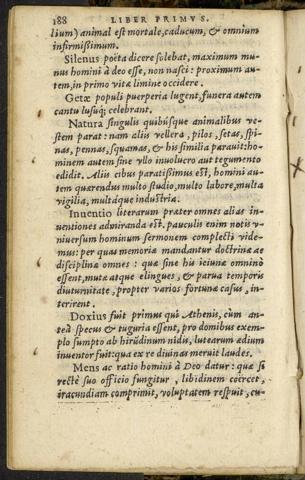 188 LIBER PRIMVS.
lium) animal est mortale, caducum, & omnium
infirmissimum.
Silenus poëta dicere solebat, maximum mu-
nus homini à deo esse, non nasci: proximum au-
tem, in primo vitæ limine occidere.
Getæ populi puerperia lugent, funera autem
cantu lusuq; celebrant.
Natura singulis quibusque animalibus ve-
stem parat: nam aliis vellera, pilos, setas, spi-
nas, pennas, squamas, & his similia parauit: ho-
minem autem sine vllo inuolucro aut tegumento
edidit. Aliis cibus paratissimus est, homini au-
tem quærendus multo studio, multo labore, multa
vigilia, multáque industria.
Inuentio literarum præter omnes alias in-
uentiones admiranda est, pauculis enim notis v-
niuersum hominum sermonem complecti vide-
mus: per quas memoria mandantur doctrinæ ac
disciplinæ omnes: quæ sine his ieiunæ omnino
essent, mutæ atque elingues, & parua temporis
diuturnitate, propter varios fortunæ casus, in-
terirent.
Doxius fuit primus qui Athenis, cùm an-
teà specus & tuguria essent, pro domibus exem-
plo sumpto ab hirundinum nidis, lutearum ædium
inuentor fuit: qua ex re diuinas meruit laudes.
Mens ac ratio homini à Deo datur: quæ si
rectè suo officio fungitur, libidinem coërcet,
iracundiam comprimit, voluptatem respuit, cu-